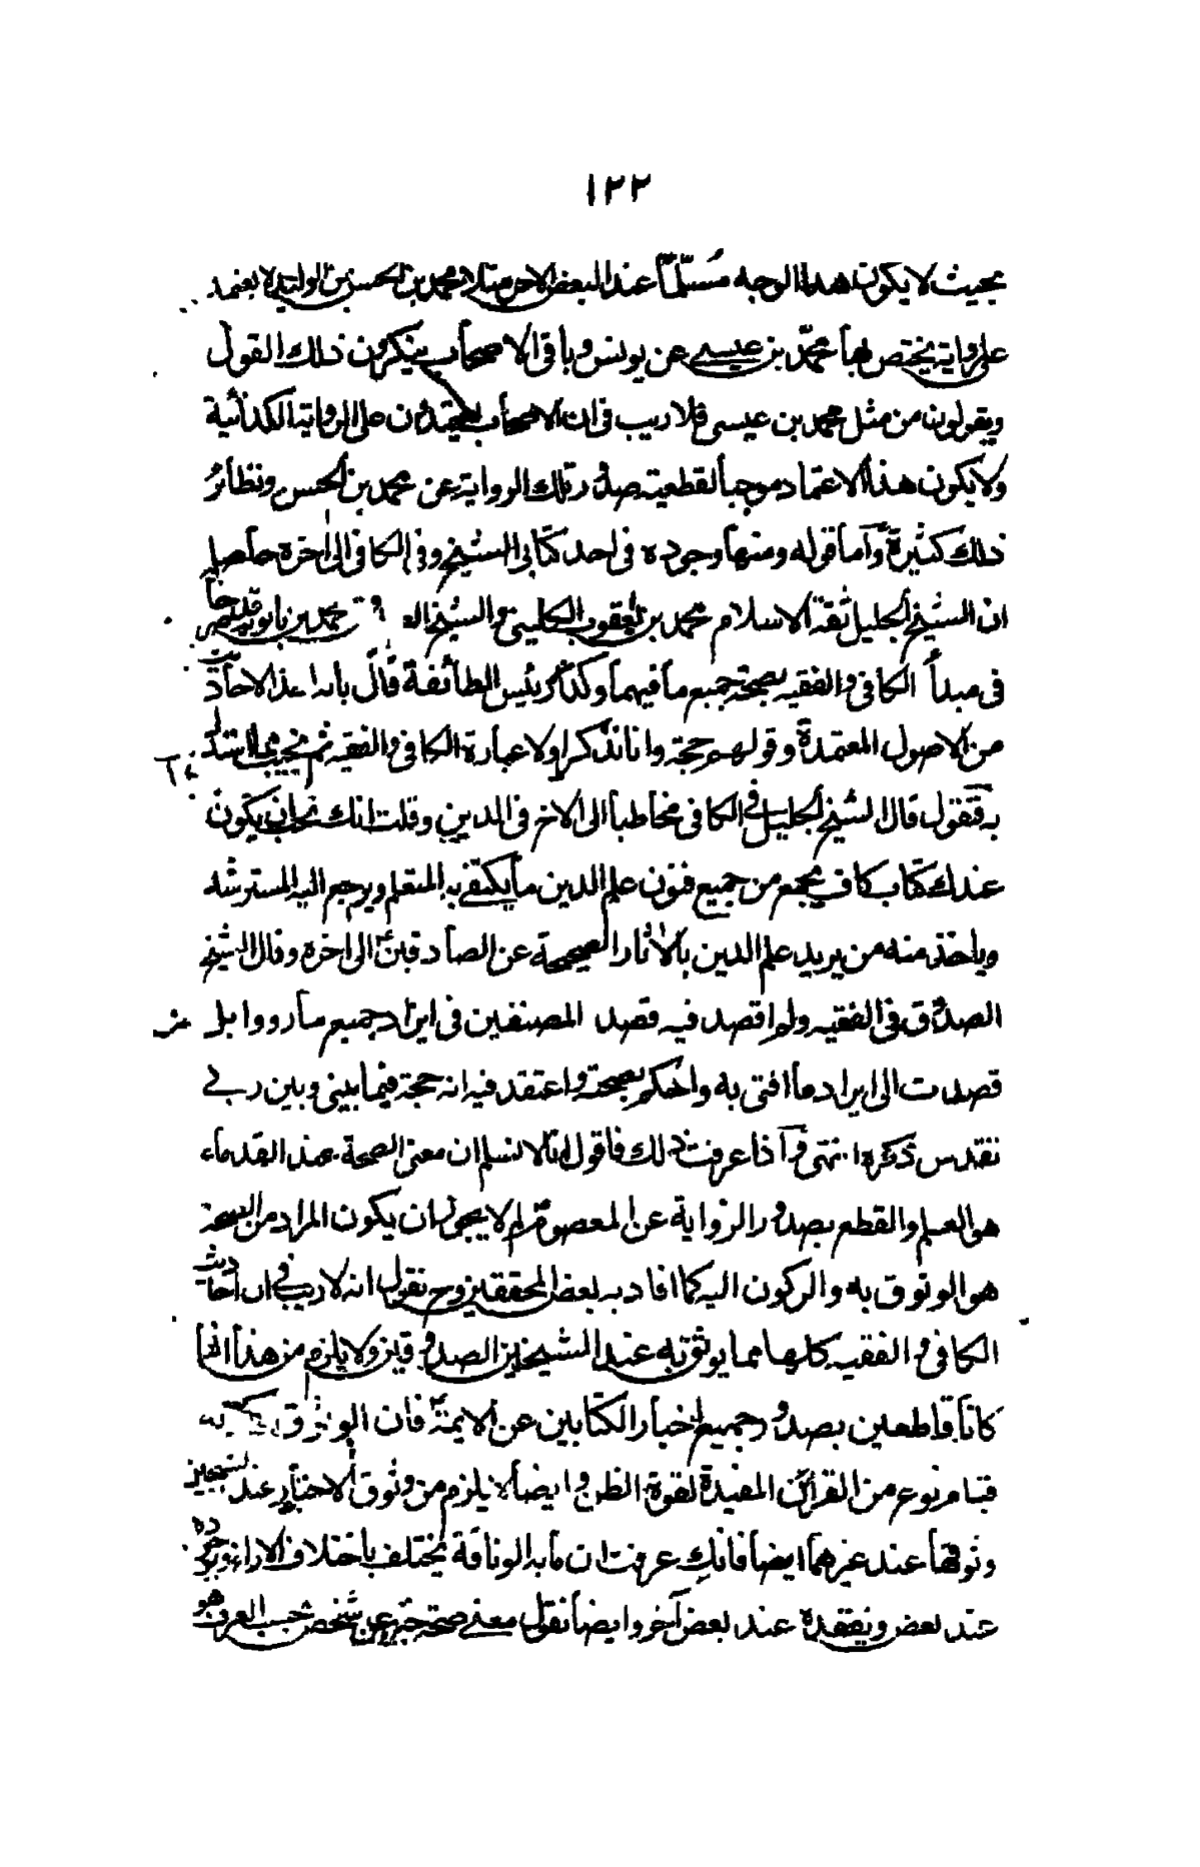 ١٢٢
بحيث لا يكون هذا الوجه مُسلّماً عند البعض الآخر مثلا محمد بن الحسن بن الوليد لا يعتمد
على رواية يختص بها محمّد بن عيسى عن يونس وباقى الاصحاب ينكرون ذلك القول
ويقولون من مثل محمد بن عيسى فلا ريب فى ان الاصحاب يعتمدون على الرواية الكذائية
ولا يكون هذا الاعتماد موجبا لقطعية صدور تلك الرواية عن محمد بن الحسن ونظائر
ذلك كثيرة وأما قوله ومنها وجوده فى احد كتابى الشيخ وفى الكافى الى اخره حاصله
ان الشيخ الجليل ثقة الاسلام محمد بن يعقوب الكلينى والشيخ محمد بن بابويه
فى مبدأ الكافى والفقيه بصحة جميع ما فيهما وكذا رئيس الطائفة قال بان هذه الاحاديث
من الاصول المعتمدة وقولهم حجة وانا نذكر اولا عبارة الكافى والفقيه ثم نجيب عما استدل
به فنقول قال الشيخ الجليل فى الكافى مخاطبا الى الاخ فى الدين وقلت انك تحب ان يكون
عندك كتاب كاف يجمع من جميع فنون علم الدين ما يكتفى به المتعلم ويرجع اليه المسترشد
وياخذ منه من يريد علم الدين بالاثار الصحيحة عن الصادقين الى اخره وقال الشيخ
الصدوق فى الفقيه ولم اقصد فيه قصد المصنفين فى ايراد جميع ما رووا بل
قصدت الى ايراد ما افتى به واحكم بصحته واعتقد فيه انه حجة فيما بينى وبين ربى
تقدس ذكره انتهى واذا عرفت ذلك فاقول انا لا نسلم ان معنى الصحة عند القدماء
هو العلم والقطع بصدور الرواية عن المعصوم لم لا يجوز ان يكون المراد من الصحة
هو الوثوق به والركون اليه كما افاد به بعض المحققين وح نقول انه لا ريب فى ان احاديث
الكافى والفقيه كلها مما يوثق به عند الشيخين الصدوقين ولا يلزم من هذا انهما
كانا قاطعين بصدور جميع اخبار الكتابين عن الايمة فان الوثوق
قيام نوع من القرائن المفيدة لقوة الظن وايضا لا يلزم من وثوق الاخبار عند الشيخين
وثوقها عند غيرهما ايضا فانك عرفت ان ما به الوثاقة يختلف باختلاف الاراء ووجوده
عند بعض ونفقده عند بعض آخر وايضا نقول معنى صحة خبر عن شخص بحسب العرف هو